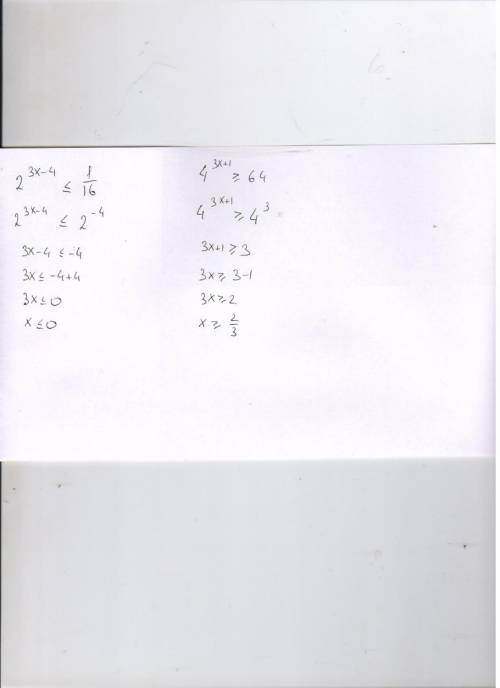 2^(3x-4) ≤ 1/16
2^(3x-4) ≤ 2^(-4)
3x-4 ≤ -4
3x ≤ -4+4
3x ≤ 0
x ≤ 0
4^(3x+1) ≥ 64
4^(3x+1) ≥ 4^3
3x+1 ≥ 3
3x ≥ 3-1
3x ≥ 2
x ≥ 2/3